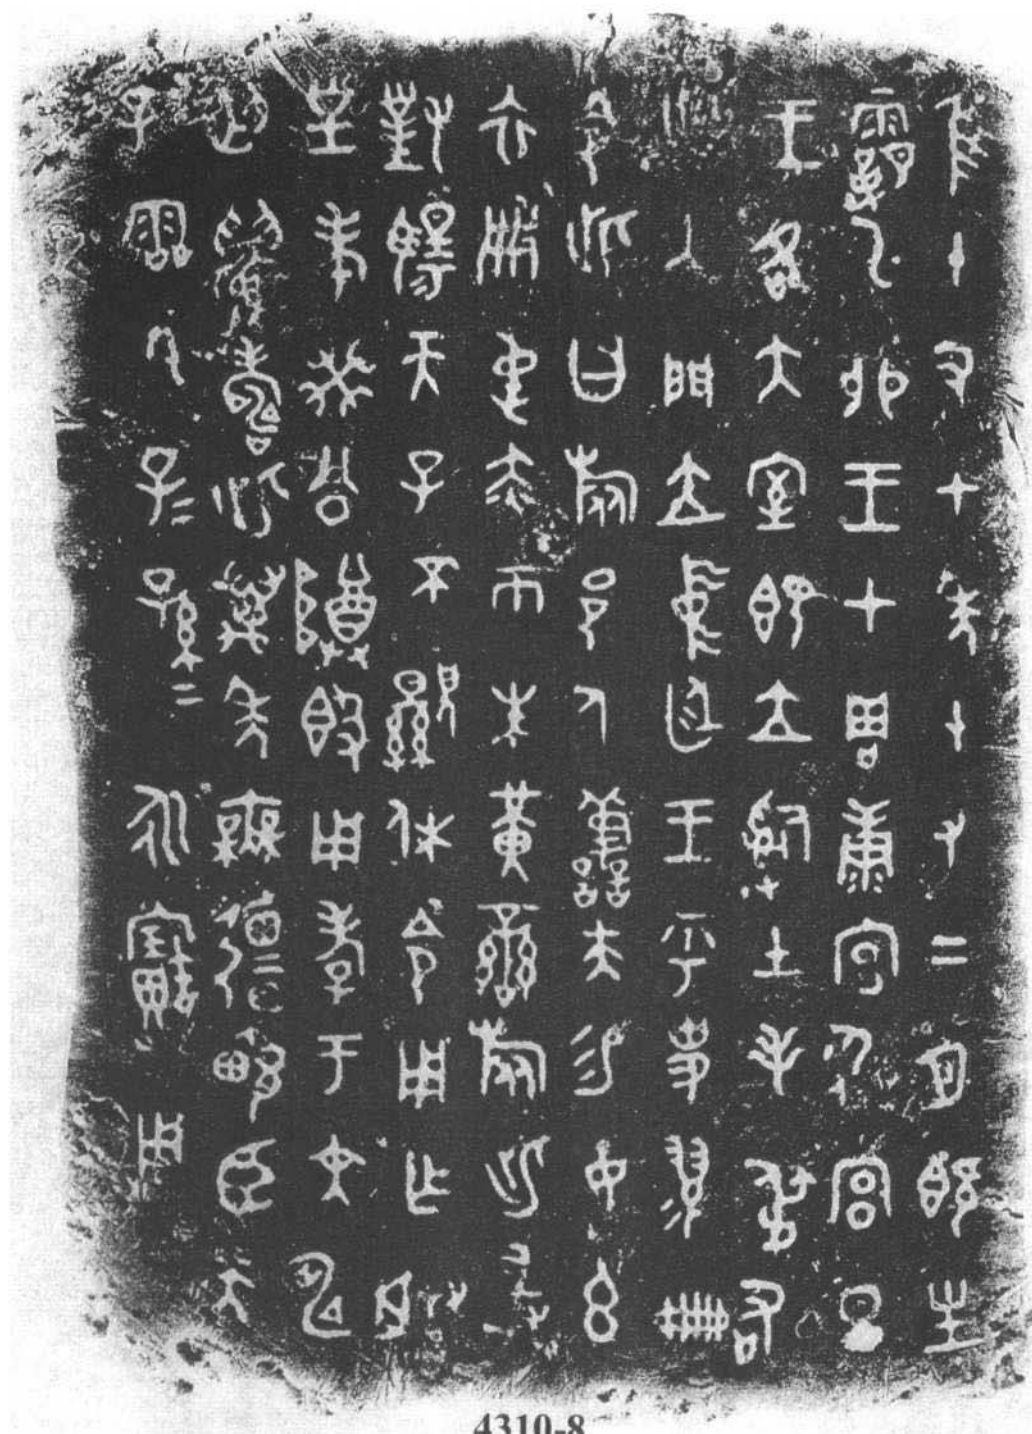 隹十又七年十又二月既生
霸乙卯王才周康宮𢓊宮旦
王各大室即立𤔲土毛弔右
此入門立中廷王乎史翏冊
令此曰旅邑人善夫易女玄
衣黹屯赤巿朱黃䜌旅此敢
對揚天子不顯休令用乍朕
皇考癸公尊簋用亯孝于文申
用匄眉壽此其萬年無彊畯臣天
子霝冬子=孫=永寶用
4310-8